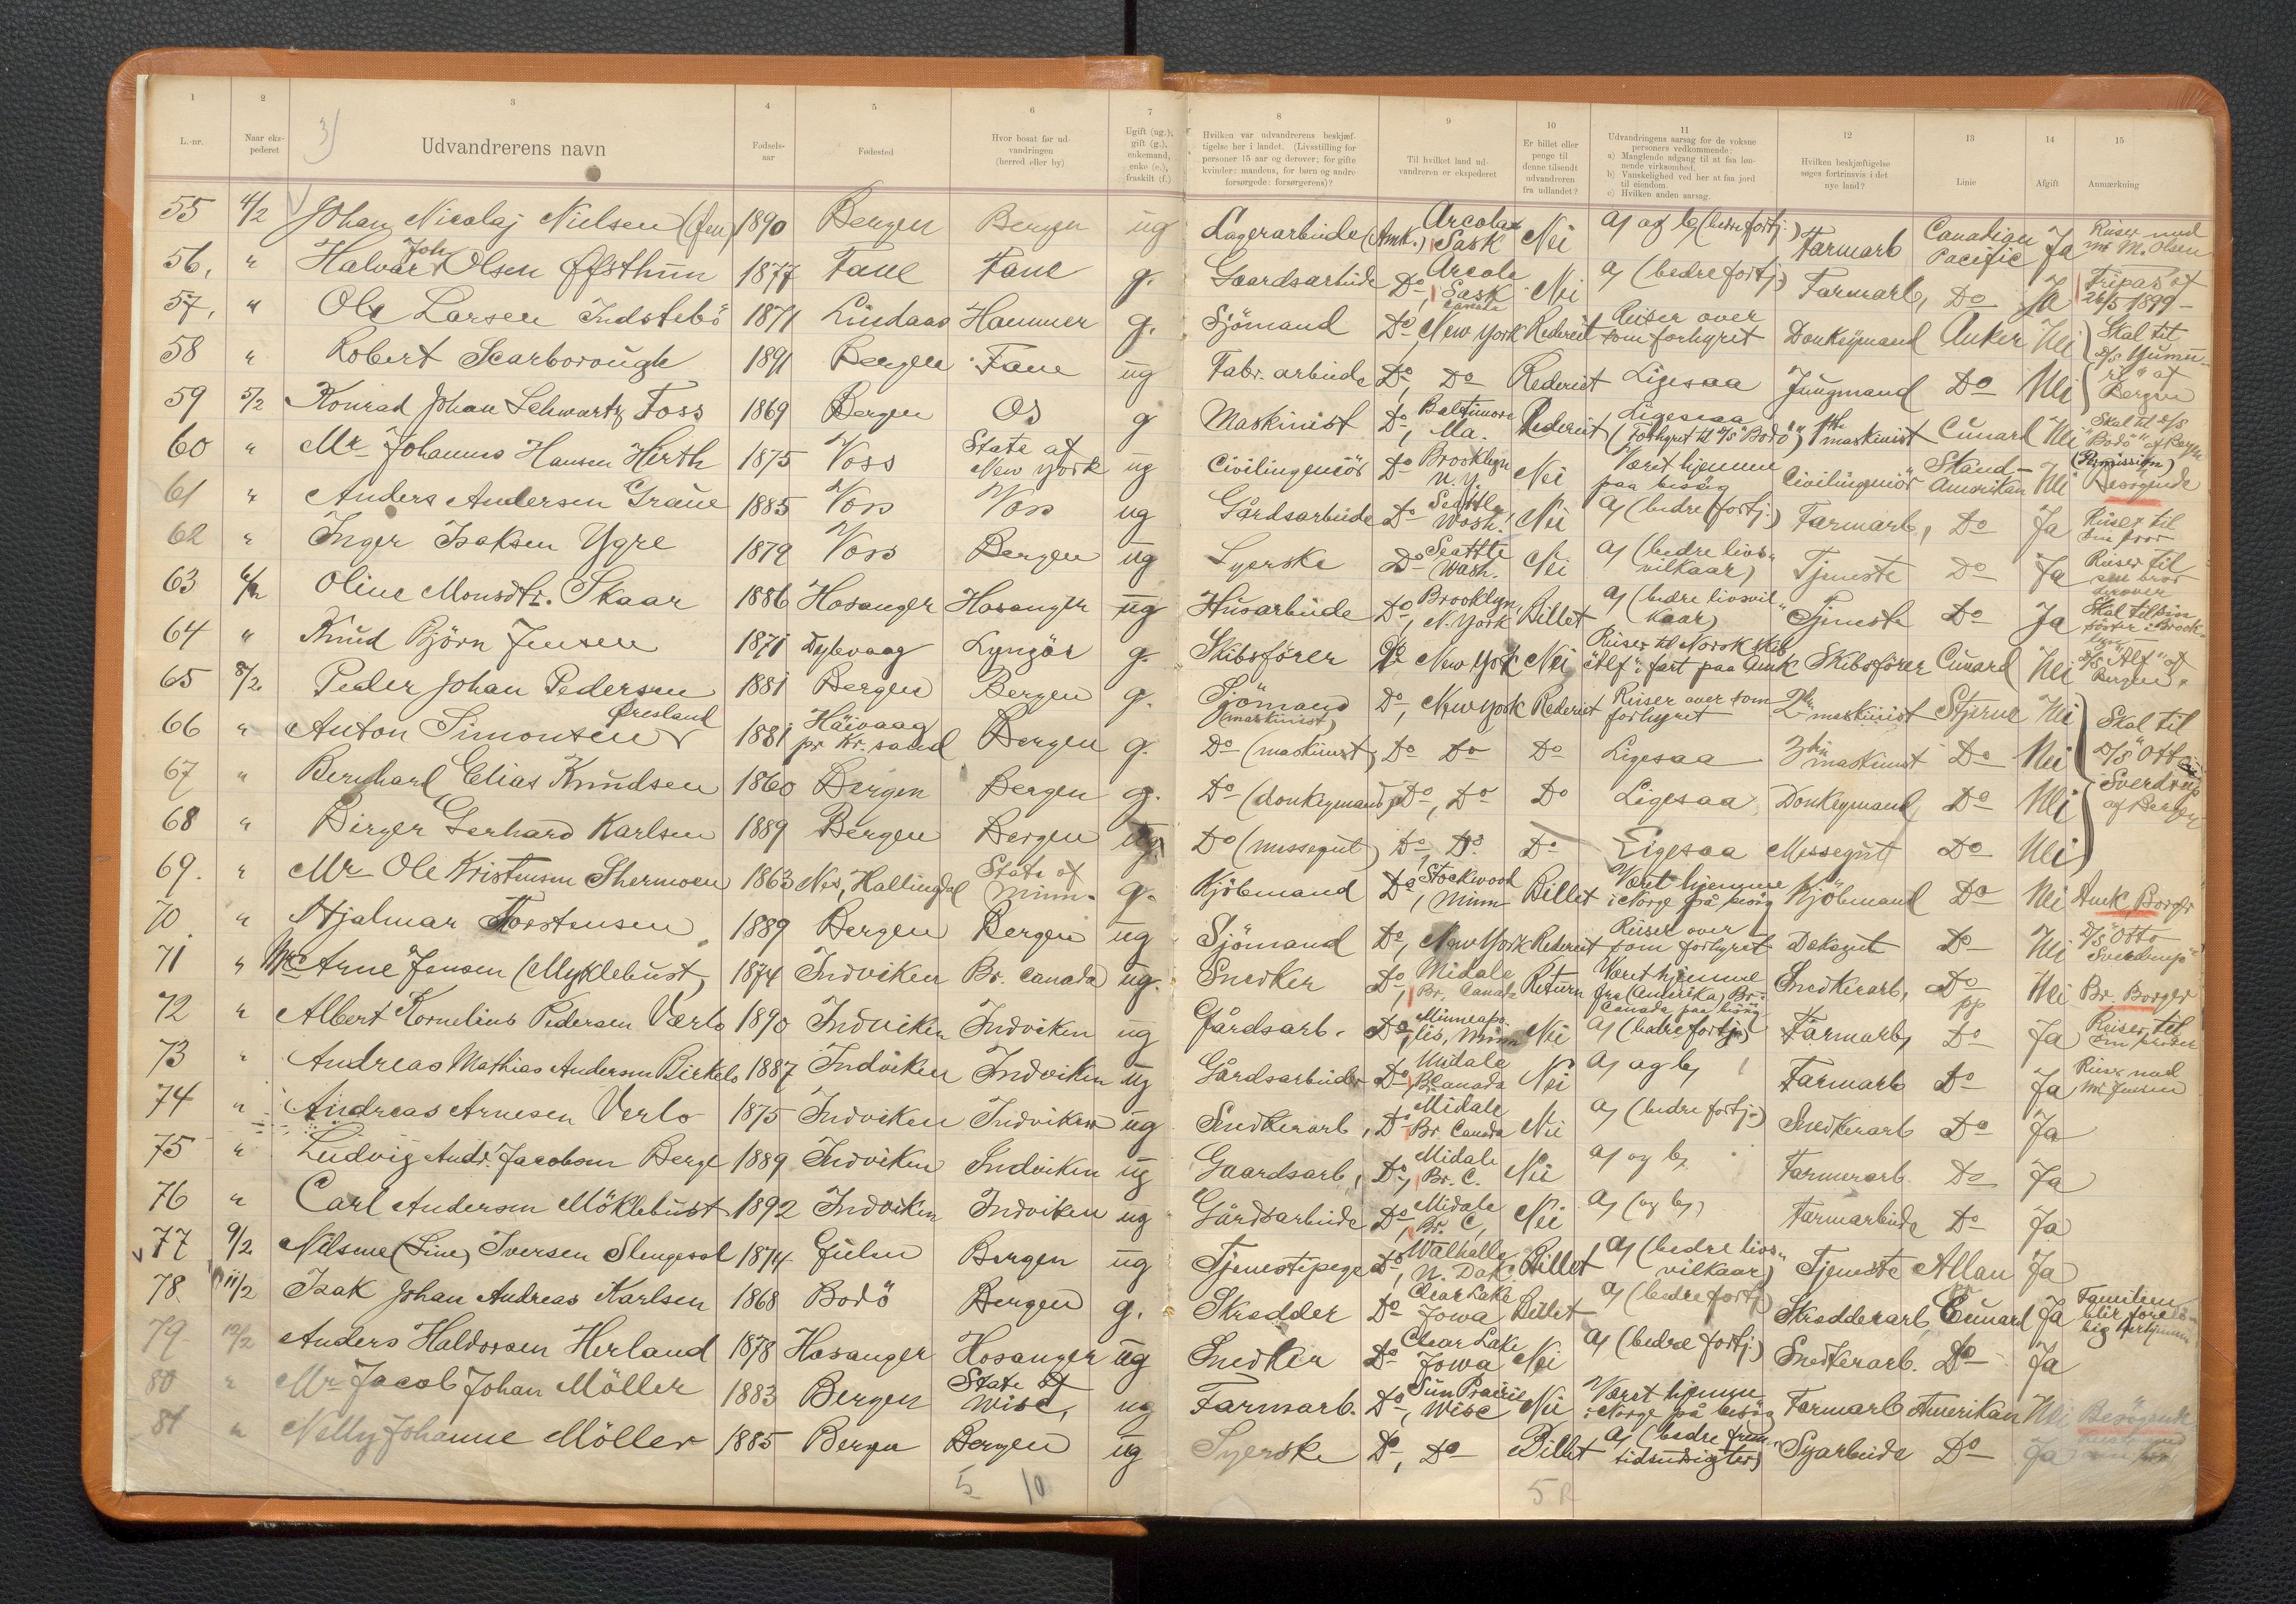 1 2 3 4 5 6 7 8 9 10 11 12 13 14 15
3)
L.-nr. | Naar eks-pederet | Udvandrerens navn | Fødsels-aar | Fødested | Hvor bosat før ud-vandringen (herred eller by) | Ugift (ug.), gift (g.), enkemand, enke (e.), fraskilt (f.) | Hvilken var udvandrerens beskjæf-tigelse her i landet. (Livsstilling for personer 15 aar og derover; for gifte kvinder: mandens, for børn og andre forsørgede: forsørgerens)? | Til hvilket land ud-vandreren er ekspederet | Er billet eller penge til denne tilsendt udvandreren fra udlandet? | Udvandringens aarsag for de voksne personers vedkommende: a) Manglende adgang til at faa løn-nende virksomhed. b) Vanskelighed ved her at faa jord til eiendom. c) Hvilken anden aarsag. | Hvilken beskjæftigelse søges fortrinsvis i det nye land? | Linie | Afgift | Anmærkning
55 4/2 Johan Nicolaj Nielsen 1890 Bergen Bergen ug Lagerarbeide (Amk.) Arcola Sask Nei a) og b) (bedre fortj.) Farmarb Canadian Pacific Ja Reiser med Mr M. Olsen
56, " Halvar Joh Olsen Øfsthun 1877 Fane Fane g. Gaardsarbeide Do Arcola Sask Canada Nei a) (bedre fortj.) Farmarb, Do Ja Fripas af 26/5 1899
57, " Ole Larsen Indstebö 1871 Lindaas Hammer g. Sjömand Do, New York Rederiet Reiser over som forhyret Donkeymand Anker Nei Skal til
58 " Robert Scarborough 1891 Bergen Fane ug Fabr. arbeide Do, Do Rederiet Ligesaa Jungmand Do Nei af Bergen
59 5/2 Konrad Johan Schwartz Foss 1869 Bergen Os g Maskinist Do, Baltimore Ma. Rederiet Ligesaa (Forhyret til D/S "Bodö") 1ste maskinist Cunard Nei Skal til D/S "Bodö" af Bergen
60 " Mr Johannes Hansen Hirth 1875 Voss State of New York ug Civilingeniör Do Brooklyn N.Y. Nei Været hjemme paa besög Civilingeniör Skand-Amerikan Nei (Permission) Besögende
61 " Anders Andersen Graue 1885 Voss Voss ug Gårdsarbeide Do Seattle Wash. Nei a) (bedre fortj.) Farmarb, Do Ja Reiser til sin bror
62 " Inger Isaksen Ygre 1879 Voss Bergen ug Syerske Do Seattle Wash. Nei a) (bedre livs-vilkaar) Tjeneste Do Ja Reiser til sin bror derover
63 6/2 Oline Monsdtr. Skaar 1886 Hosanger Hosanger ug Husarbeide Do, Brooklyn, N. York Billet a) (bedre livsvil-kaar) Tjeneste Do Ja Skal til sin söster i Brook-lyn
64 " Knud Björn Jensen 1871 Dybvaag Lyngör g. Skibsförer Do New York Nei Reiser til Norsk skib "Alf" fart paa Amk Skibsförer Cunard Nei D/S "Alf" af Bergen.
65 8/2. Peder Johan Pedersen 1881 Bergen Bergen g. Sjömand (maskinist) Do, New York Rederiet Reiser over som forhyret 2den maskinist Stjerne Nei Skal til
66 " Anton Simonsen Øresland 1881 Häivaag pr Kr. sand Bergen g. Do (maskinist) Do Do Do Ligesaa 3die maskinist Do Nei D/S "Otto
67 " Bernhard Elias Knudsen 1860 Bergen Bergen g. Do (donkeymand) Do, Do Do Ligesaa Donkeymand Do Nei Sverdrup af Bergen
68 " Birger Gerhard Karlsen 1889 Bergen Bergen ug. Do (messegut) Do, Do Do Ligesaa Messegut Do Nei
69. " Mr Ole Kristensen Shermoen 1863 Nes, Hallingdal State of Minn. g. Kjöbmand Do, Stockwood Minn Billet Været hjemme i Norge på besög Kjöbmand Do Nei Amk. Borger
70 " Hjalmar Torstensen 1889 Bergen Bergen ug Sjömand Do, New York Rederiet Reiser over som forhyret Deksgut Do Nei D/S "Otto Sverdrup"
71 " Mr Arne Jensen (Myklebust) 1874 Indviken Br. Canada ug. Snedker Do, Midale Br. Canada Return Været hjemme fra (Amerika) Br. Canada paa besög Snedkerarb, Do Nei Br. Borger
72 " Albert Kornelius Pedersen Verlo 1890 Indviken Indviken ug Gårdsarb. Do, Minneapo-lis, Minn Nei a) (bedre fortj.) Farmarb, Do Ja Reiser til
73 " Andreas Mathias Andersen Birkelo 1887 Indviken Indviken ug Gårdsarbeider Do, Midale Br Canada Nei a) og b) Farmarb Do Ja Reiser med Mr Jensen
74 " Andreas Arnesen Verlo 1875 Indviken Indviken ug Snedkerarb, Do Midale Br. Canada Nei a) (bedre fortj.) Snedkerarb Do Ja
75 " Ludvig Andr. Jacobsen Berge 1889 Indviken Indviken ug Gaardsarb, Do, Midale Br. C. Nei a) og b) Farmerarb. Do Ja
76 " Carl Andersen Möklebust 1892 Indviken Indviken ug Gårdsarbeide Do, Midale Br. C, Nei a) (og b) Farmarbeide Do Ja
77 9/2 Nilsine (Line) Iversen Slengesol 1874 Gulen Bergen ug Tjenestepige Do, Walhalla N. Dak. Billet a) (bedre livs-vilkaar) Tjeneste Allan Ja
78 11/2 Isak Johan Andreas Karlsen 1868 Bodö Bergen g. Skrædder Do Clear Lake Jowa Billet a) (bedre fortj) Skrædderarb Cunard Ja Familien blir foreløbig herhjemme
79 12/2 Anders Haldorsen Herland 1878 Hosanger Hosanger ug Snedker Do Clear Lake Jowa Nei a) (bedre fortj.) Snedkerarb. Do Ja
80 " Mr Jacob Johan Möller 1883 Bergen State of Wisc, ug Farmarb. Do, Sun Prairie Wisc Nei Været hjemme i Norge på besög Farmarb Amerikan Nei Besögende
81 " Nelly Johanne Möller 1885 Bergen Bergen ug Syerske Do, Do Billet a) (bedre frem-tidsudsigter) Syarbeide Do Ja
5 10 5 R